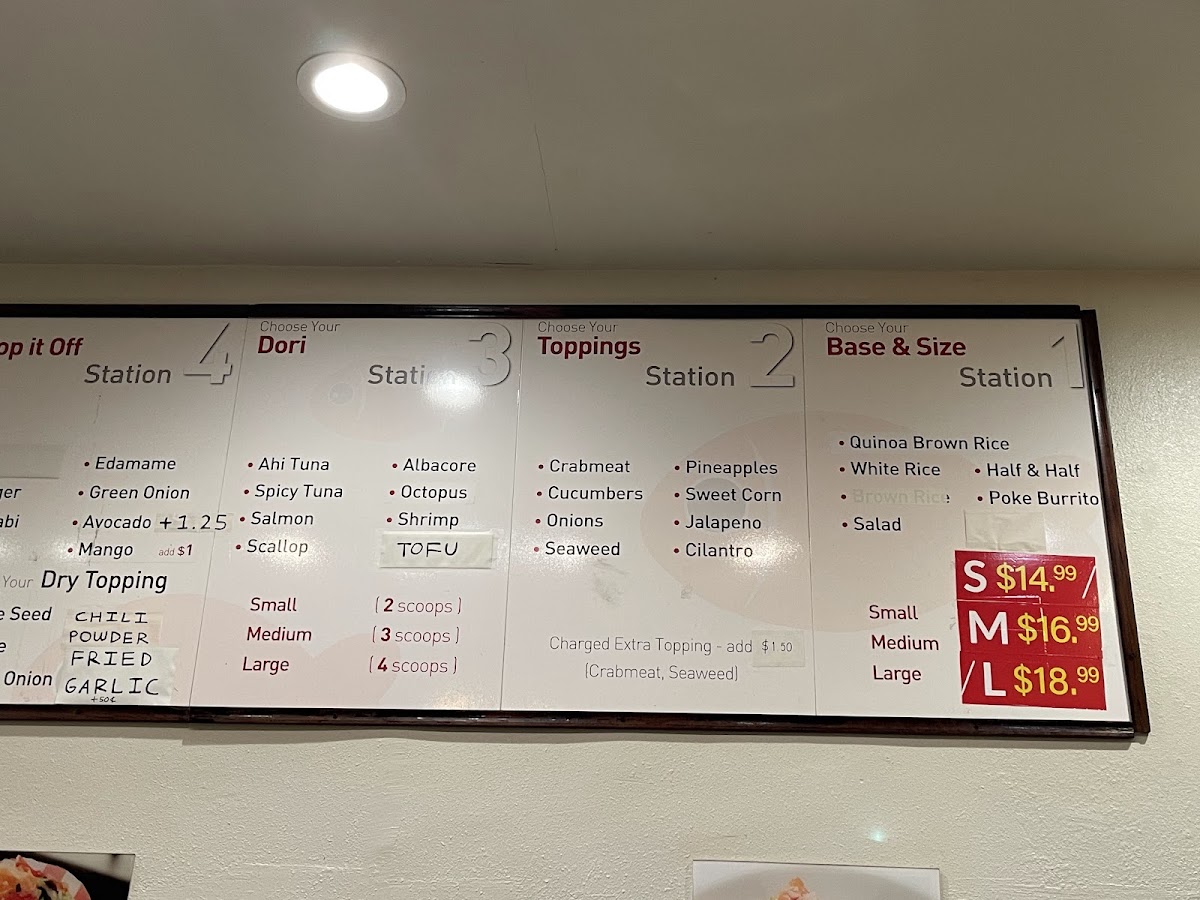 op it Off
Station 4
ger
abi
• Edamame
• Green Onion
• Avocado +1.25
• Mango add $1
Your Dry Topping
e Seed
e
Onion
CHILI
POWDER
FRIED
GARLIC
+50¢
Choose Your
Dori
Station 3
• Ahi Tuna
• Spicy Tuna
• Salmon
• Scallop
• Albacore
• Octopus
• Shrimp
TOFU
Small ( 2 scoops )
Medium ( 3 scoops )
Large ( 4 scoops )
Choose Your
Toppings
Station 2
• Crabmeat
• Cucumbers
• Onions
• Seaweed
• Pineapples
• Sweet Corn
• Jalapeno
• Cilantro
Charged Extra Topping - add $1.50
(Crabmeat, Seaweed)
Choose Your
Base & Size
Station 1
• Quinoa Brown Rice
• White Rice
• Brown Rice
• Salad
• Half & Half
• Poke Burrito
Small
Medium
Large
S $14.99 /
M $16.99
/ L $18.99